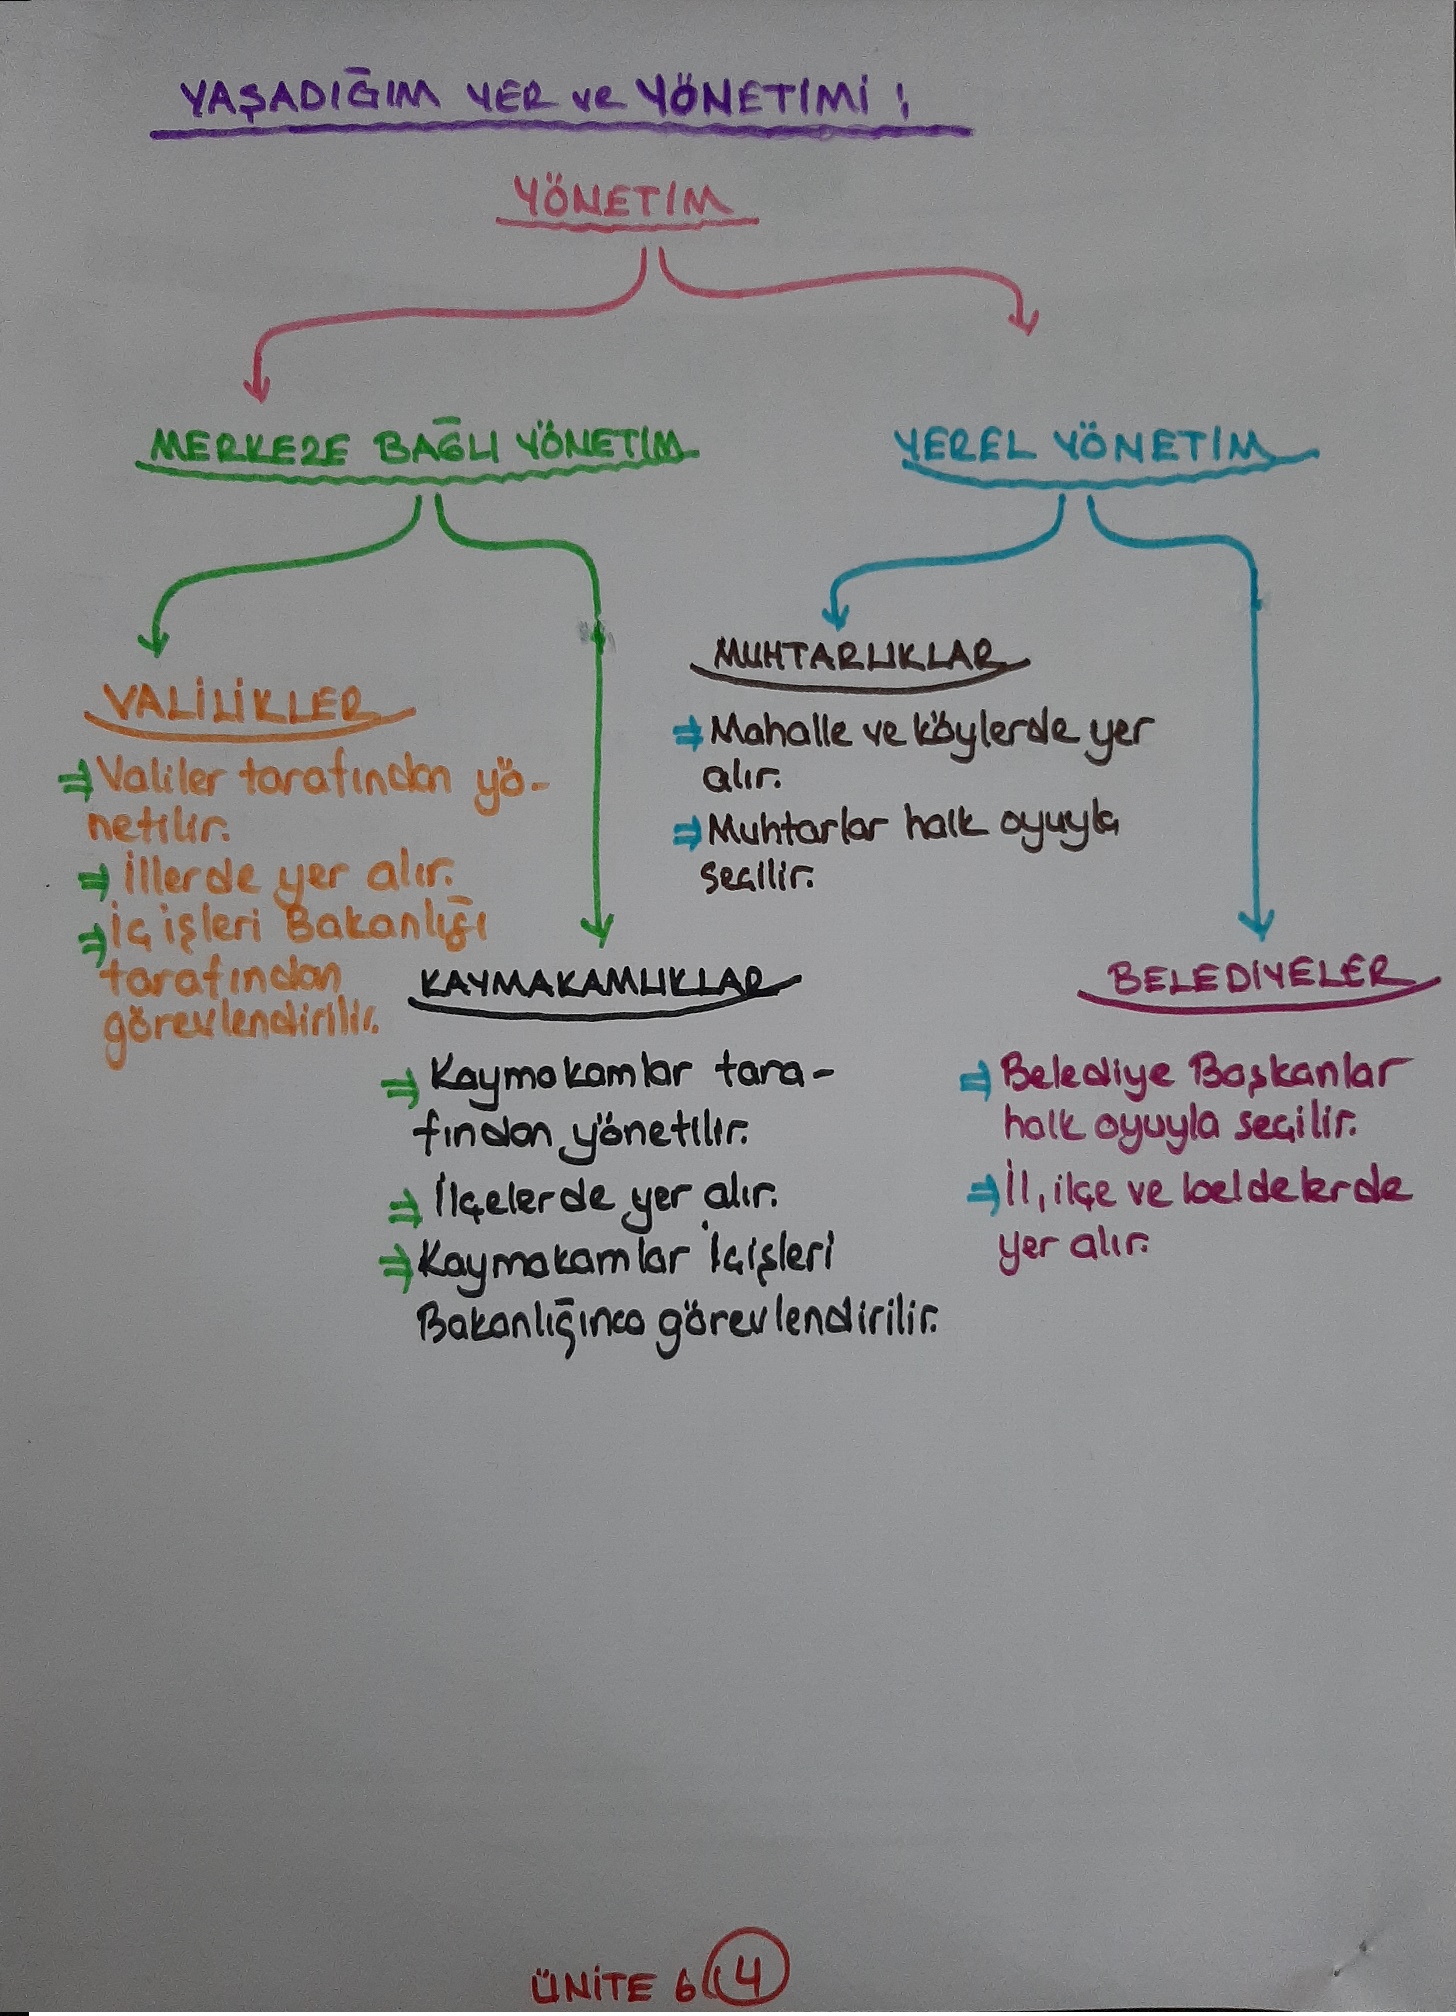 YAŞADIĞIM YER ve YÖNETİMİ :
YÖNETİM
MERKEZE BAĞLI YÖNETİM
YEREL YÖNETİM
VALİLİKLER
⇒ Valiler tarafından yö-
netilir.
⇒ İllerde yer alır.
⇒ İç işleri Bakanlığı
tarafından
görevlendirilir.
KAYMAKAMLIKLAR
⇒ Kaymakamlar tara-
fından yönetilir.
⇒ İlçelerde yer alır.
⇒ Kaymakamlar İçişleri
Bakanlığınca görevlendirilir.
MUHTARLIKLAR
⇒ Mahalle ve köylerde yer
alır.
⇒ Muhtarlar halk oyuyla
seçilir.
BELEDİYELER
⇒ Belediye Başkanlar
halk oyuyla seçilir.
⇒ İl, ilçe ve beldelerde
yer alır.
ÜNİTE 6 4